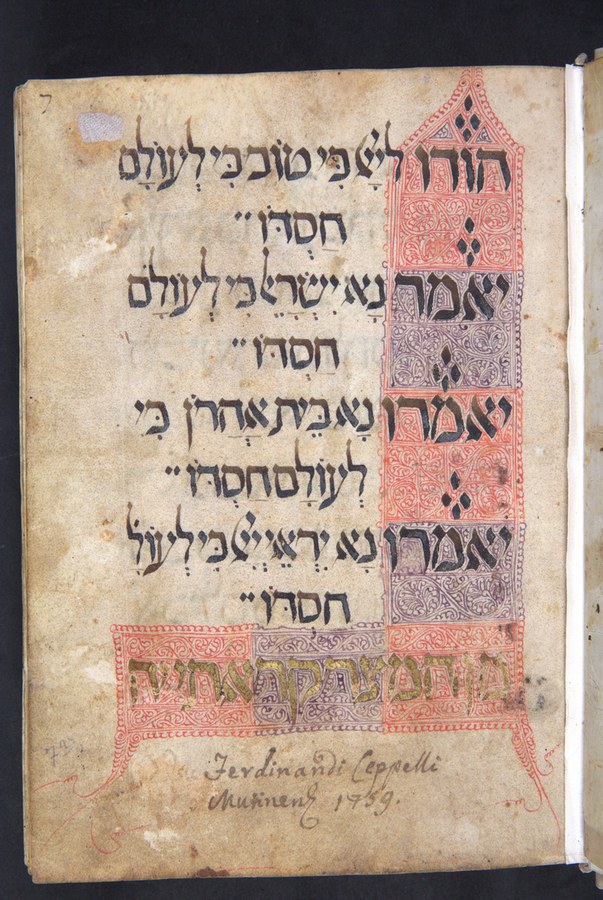 7
הודו לייָ כי טוב כי לעולם
חסדו׃
יאמר נא ישראל כי לעולם
חסדו׃
יאמרו נא בית אהרן כי
לעולם חסדו׃
יאמרו נא יראי יי כי לעול
חסדו׃
מן המצר קראתי יה
Ferdinandi Ceppelli
1759.
73